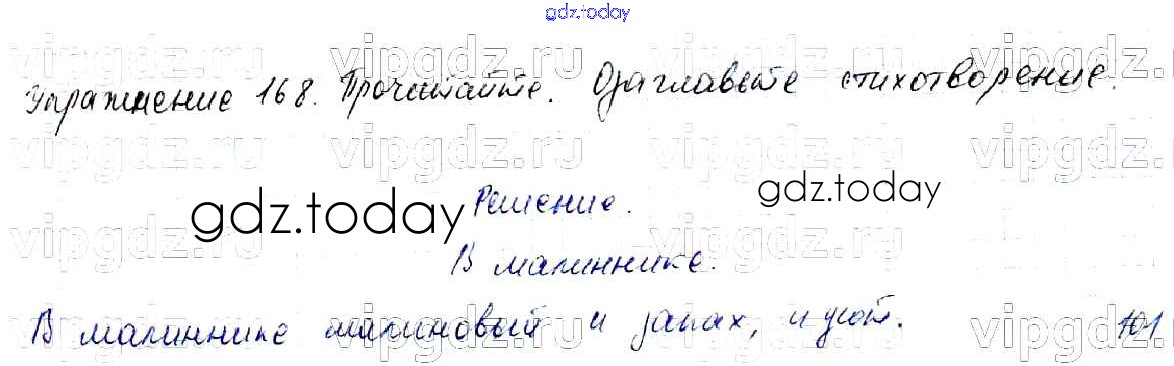 gdz.today
vipgdz.ru vipgdz.ru vipgdz.ru vipgdz
Упражнение 168. Прочитайте. Озаглавьте стихотворение.
vipgdz.ru vipgdz.ru vipgdz.ru vipgdz
gdz.today Решение. gdz.today
vipgdz.ru vipgdz.ru vipgdz.ru vipgdz
В малиннике.
В малиннике малиновый и запах, и уют. 101
vipgdz.ru vipgdz.ru vipgdz.ru vipgdz